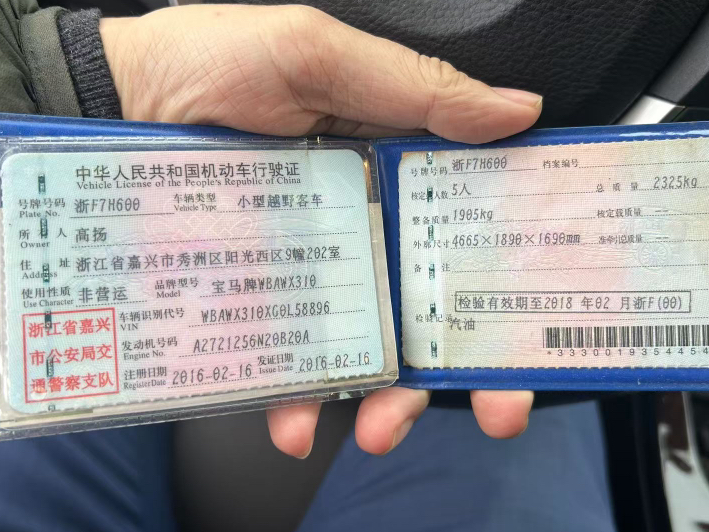 中华人民共和国机动车行驶证
Vehicle License of the People's Republic of China
号牌号码 浙F7H600 车辆类型 小型越野客车
Plate No. Vehicle Type
所有人 高扬
Owner
住址 浙江省嘉兴市秀洲区阳光西区9幢202室
Address
使用性质 非营运 品牌型号 宝马牌WBAWX310
Use Character Model
浙江省嘉兴
市公安局交
通警察支队
车辆识别代号 WBAWX310XG0L58896
VIN
发动机号码 A2721256N20B20A
Engine No.
注册日期 2016-02-16 发证日期 2016-02-16
Register Date Issue Date
号牌号码 浙F7H600 档案编号
核定人数 5人 总质量 2325kg
整备质量 1905kg 核定载质量 --
外廓尺寸 4665×1890×1690mm 准牵引总质量 --
备注
检验有效期至2018年02月浙F(00)
检验记录
汽油
*3330019354454